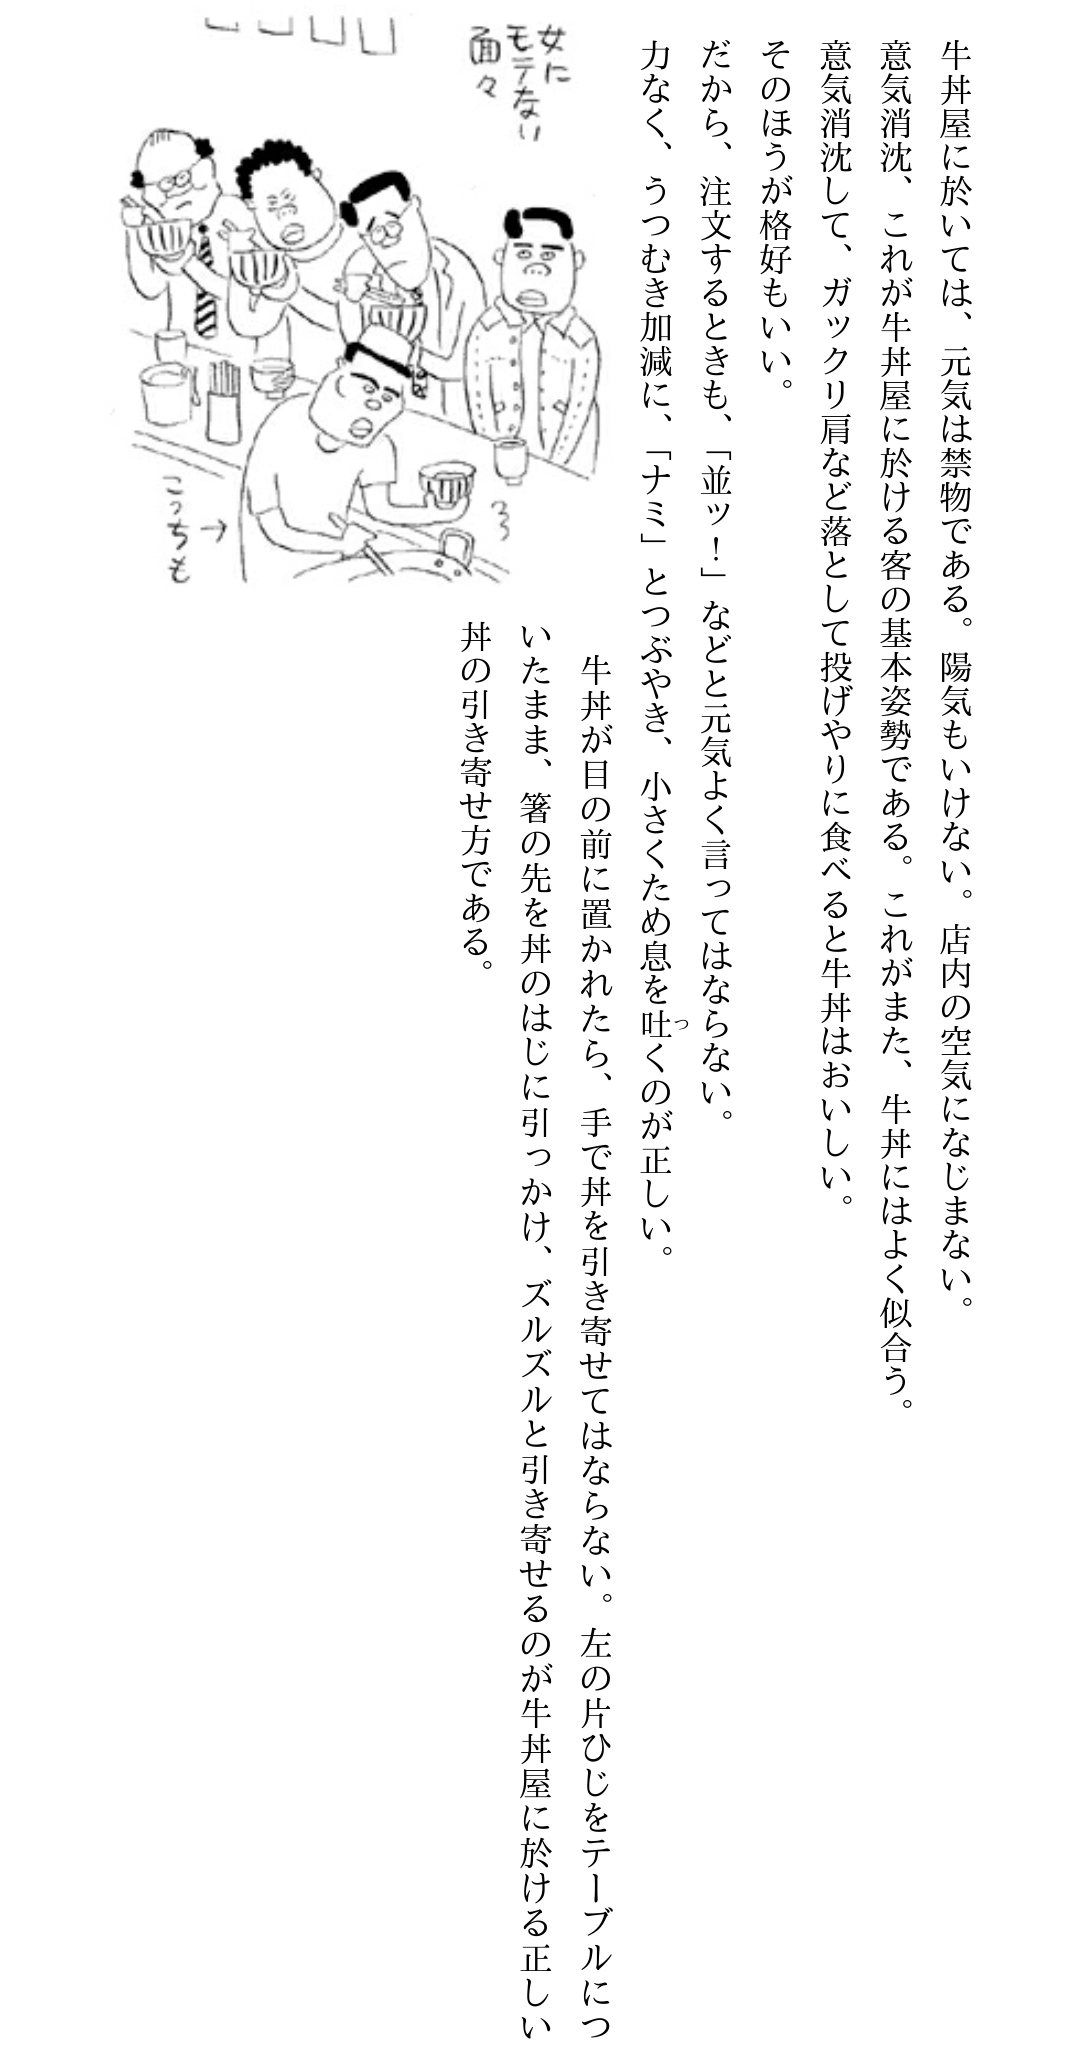 牛丼屋に於いては、元気は禁物である。陽気もいけない。店内の空気になじまない。
意気消沈、これが牛丼屋に於ける客の基本姿勢である。これがまた、牛丼にはよく似合う。
意気消沈して、ガックリ肩など落として投げやりに食べると牛丼はおいしい。
そのほうが格好もいい。
だから、注文するときも、「並ッ！」などと元気よく言ってはならない。
力なく、うつむき加減に、「ナミ」とつぶやき、小さくため息を吐くのが正しい。
つ
牛丼が目の前に置かれたら、手で丼を引き寄せてはならない。左の片ひじをテーブルにつ
いたまま、箸の先を丼のはじに引っかけ、ズルズルと引き寄せるのが牛丼屋に於ける正しい
丼の引き寄せ方である。
女に
モテない
面々
こっちも